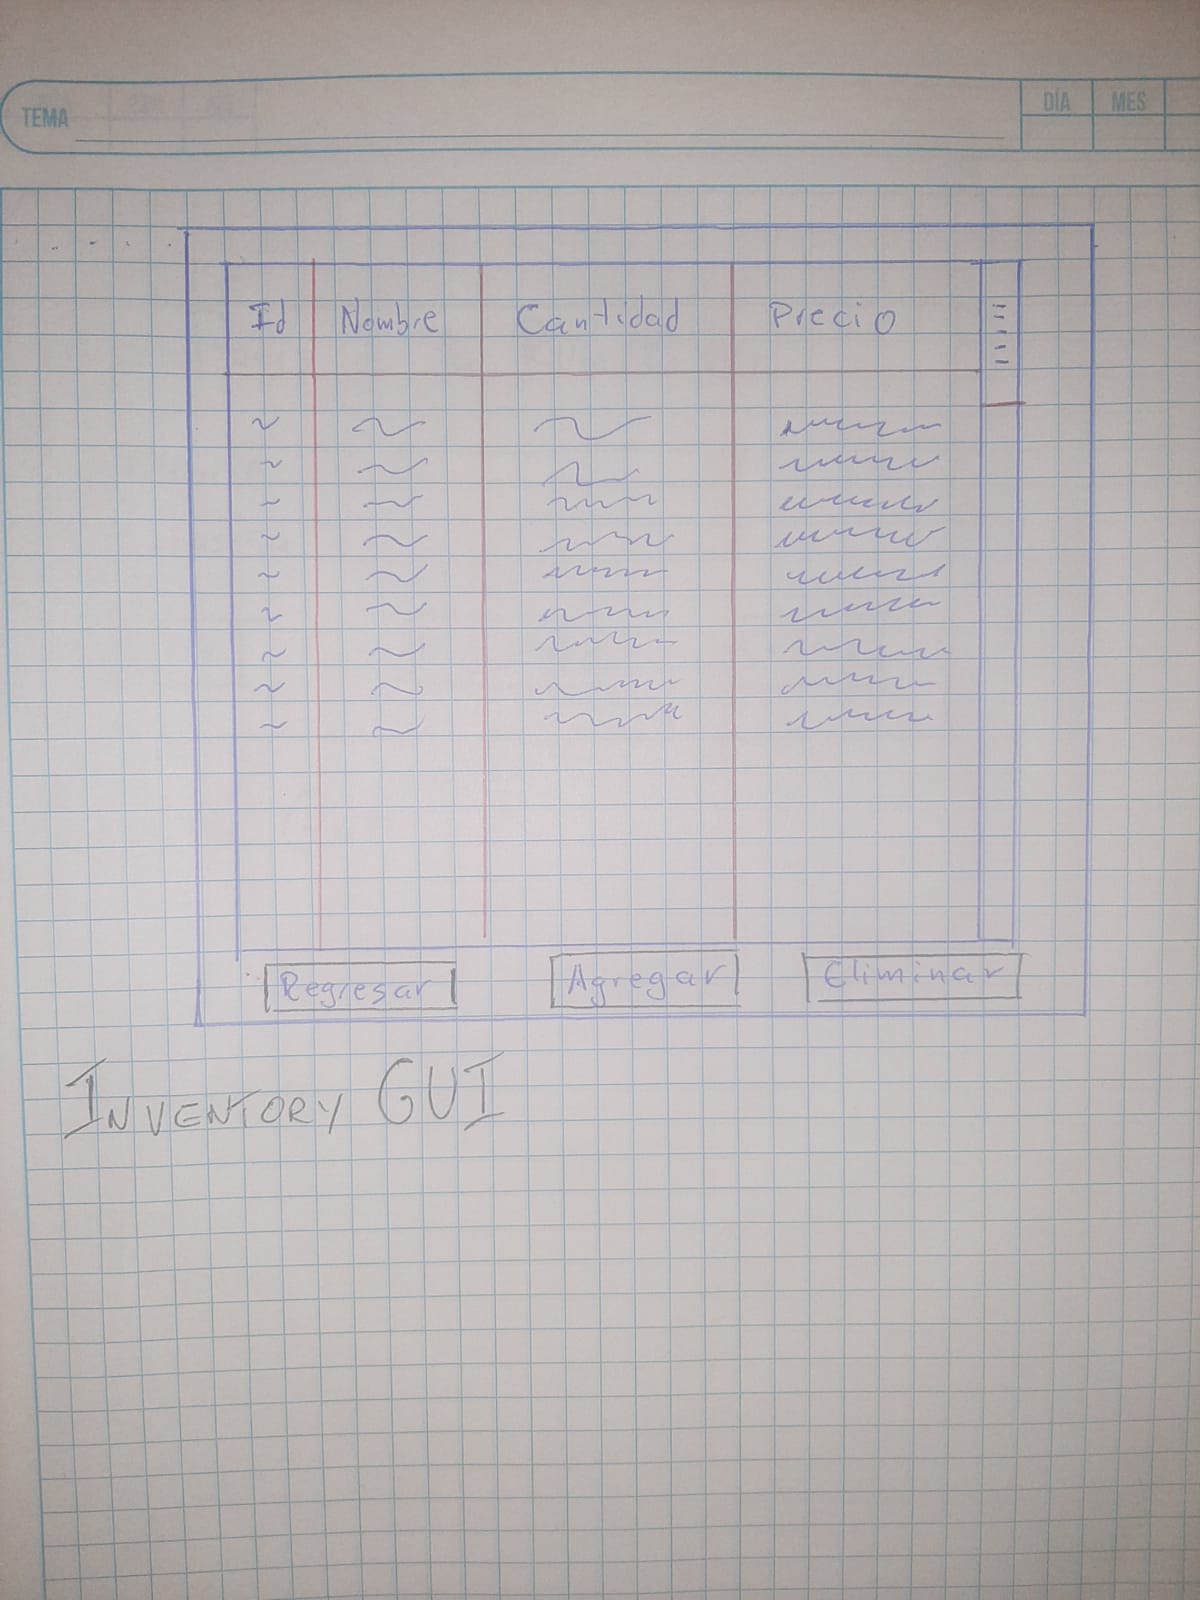 TEMA
DÍA MES
Id Nombre Cantidad Precio
Regresar Agregar Eliminar
INVENTORY GUI